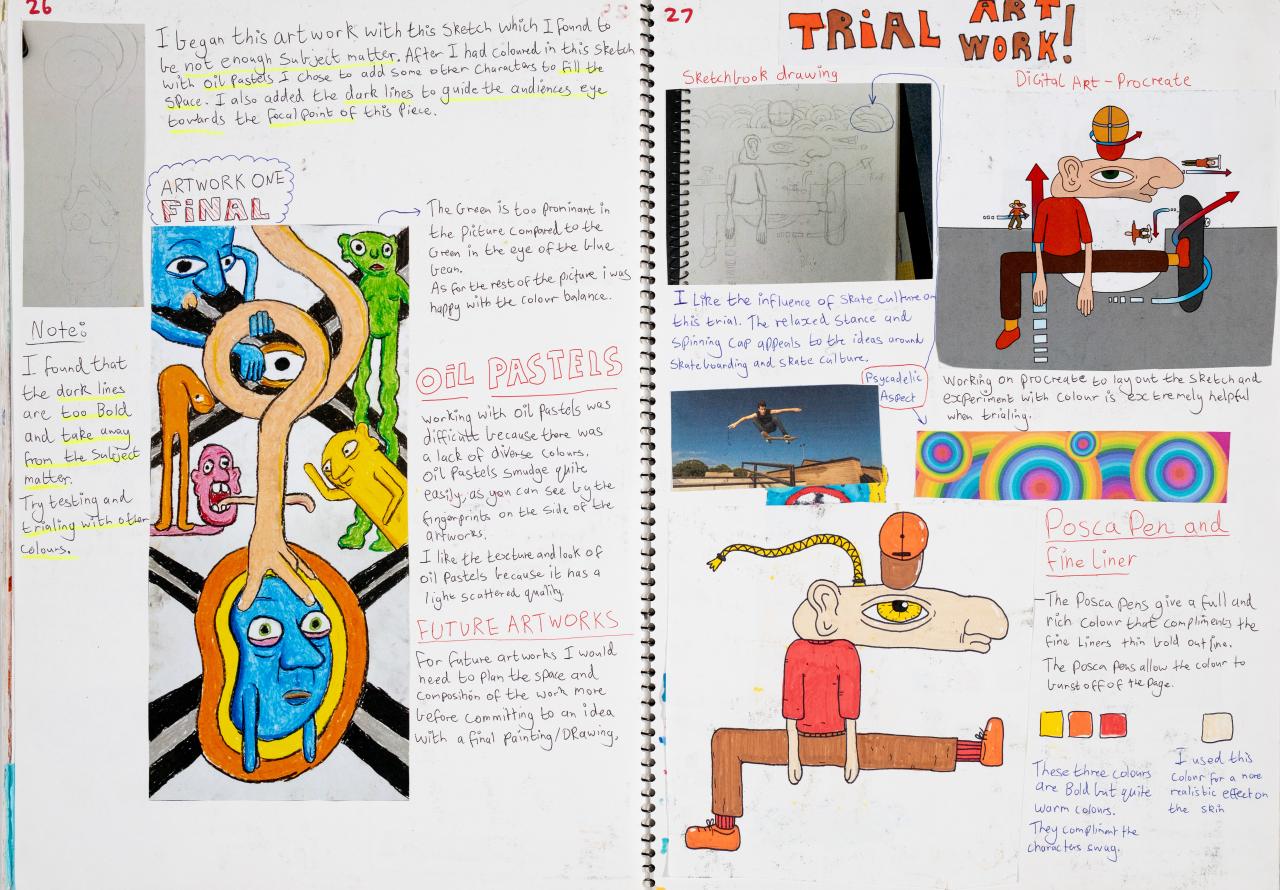 26
I began this artwork with this sketch which I found to
be not enough subject matter. After I had coloured in this sketch
with oil pastels I chose to add some other characters to fill the
space. I also added the dark lines to guide the audiences eye
towards the focal point of this piece.
ARTWORK ONE
FINAL
The Green is too prominent in
the picture compared to the
Green in the eye of the blue
bean.
As for the rest of the picture i was
happy with the colour balance.
Note:
I found that
the dark lines
are too Bold
and take away
from the subject
matter.
Try testing and
trialing with other
colours.
OIL PASTELS
working with oil pastels was
difficult because there was
a lack of diverse colours.
Oil pastels smudge quite
easily, as you can see by the
fingerprints on the side of the
artworks.
I like the texture and look of
oil pastels because it has a
light scattered quality.
FUTURE ARTWORKS
For future artworks I would
need to plan the space and
composition of the work more
before committing to an idea
with a final painting/DRawing.
27
TRIAL ART
WORK!
Sketchbook drawing
Digital Art - Procreate
I Like the influence of skate culture on
this trial. The relaxed stance and
spinning cap appeals to the ideas around
skateboarding and skate culture.
Psycadelic
Aspect
Working on procreate to lay out the sketch and
experiment with colour is extremely helpful
when trialing.
Posca Pen and
fine liner
- The Posca pens give a full and
rich colour that compliments the
fine liners thin bold outline.
The Posca Pens allow the colour to
burst off of the page.
These three colours
are Bold but quite
warm colours.
They compliment the
characters swag.
I used this
colour for a more
realistic effect on
the skin